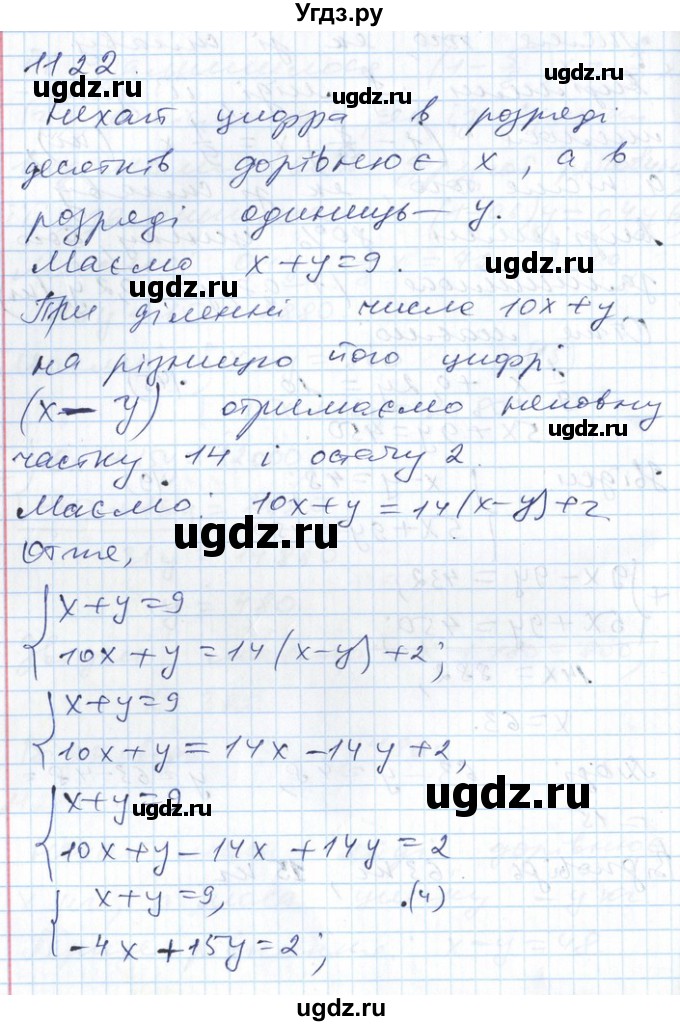 Угдз.ру
1122.
Нехай цифра в розряді
десятків дорівнює x, а в
розряді одиниць — y.
Маємо x+y=9.
При діленні числа 10x+y
на різницю його цифр
(x-y) отримаємо неповну
частку 14 і остачу 2.
Маємо: 10x+y=14(x-y)+2
Отже,
x+y=9
10x+y=14(x-y)+2;
x+y=9
10x+y=14x-14y+2,
x+y=9
10x+y-14x+14y=2
x+y=9, ·(4)
-4x+15y=2;
ugdz.ru
ugdz.ru
ugdz.ru
ugdz.ru
ugdz.ru
ugdz.ru
ugdz.ru
ugdz.ru
ugdz.ru
ugdz.ru